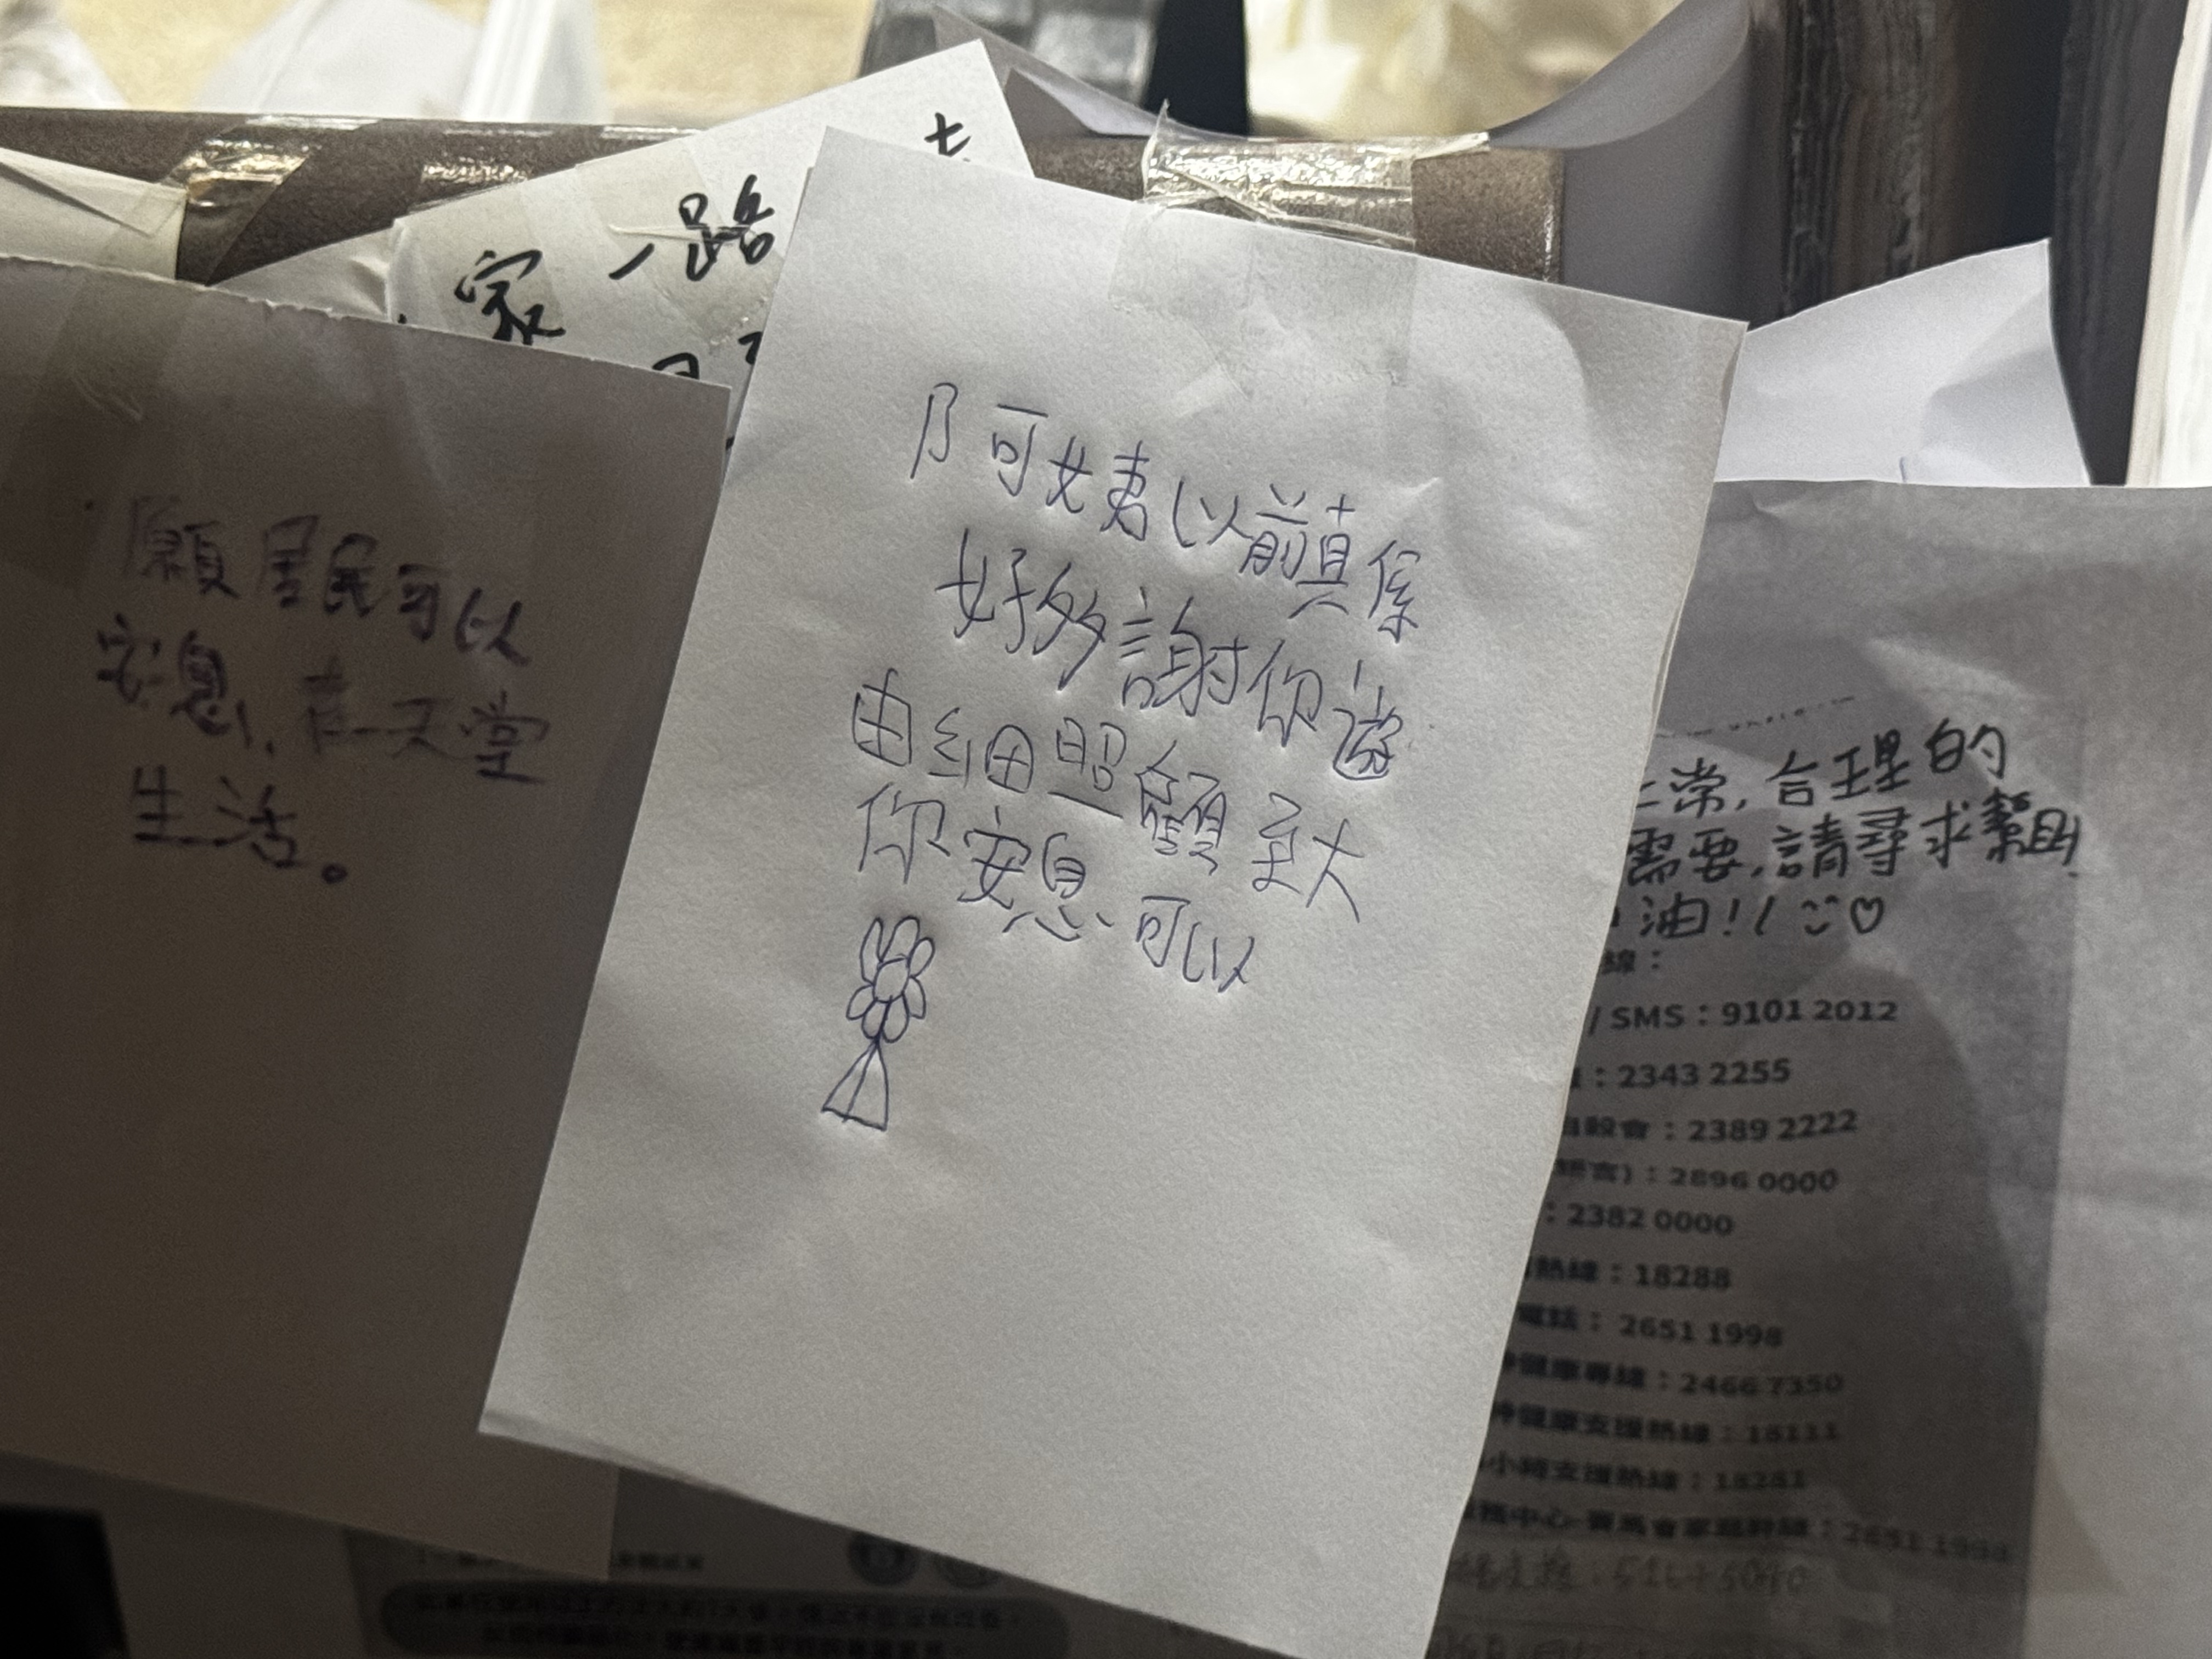 家一路
願居民可以
安息,在天堂
生活。
阿姨以前真係
好多謝你
由細照顧至大
你安息可以
常,合理的
需要,請尋求幫助
油!
線:
/ SMS:9101 2012
:2343 2255
:2389 2222
):2896 0000
:2382 0000
熱線:18288
電話:2651 1998
健康專線:2466 7350
健康支援熱線:18111
小時支援熱線:18281
務中心-賽馬會家庭幹線:2651 1998